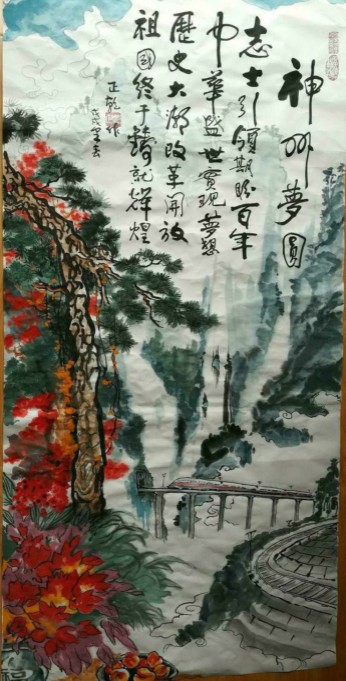 神州夢圓
志士引領期盼百年
中華盛世實現夢想
歷史大潮改革開放
祖國終于鑄就輝煌
正乾作